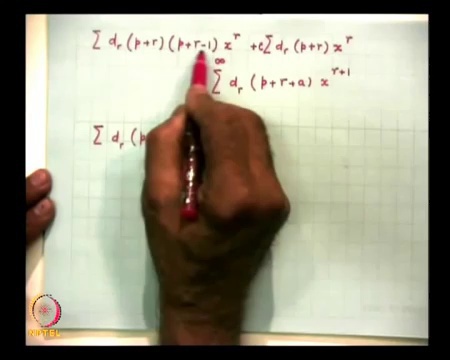 Σ d_r (p+r) (p+r-1) x^r + c Σ d_r (p+r) x^r
∞
Σ d_r (p+r+a) x^{r+1}
Σ d_r (p
NPTEL